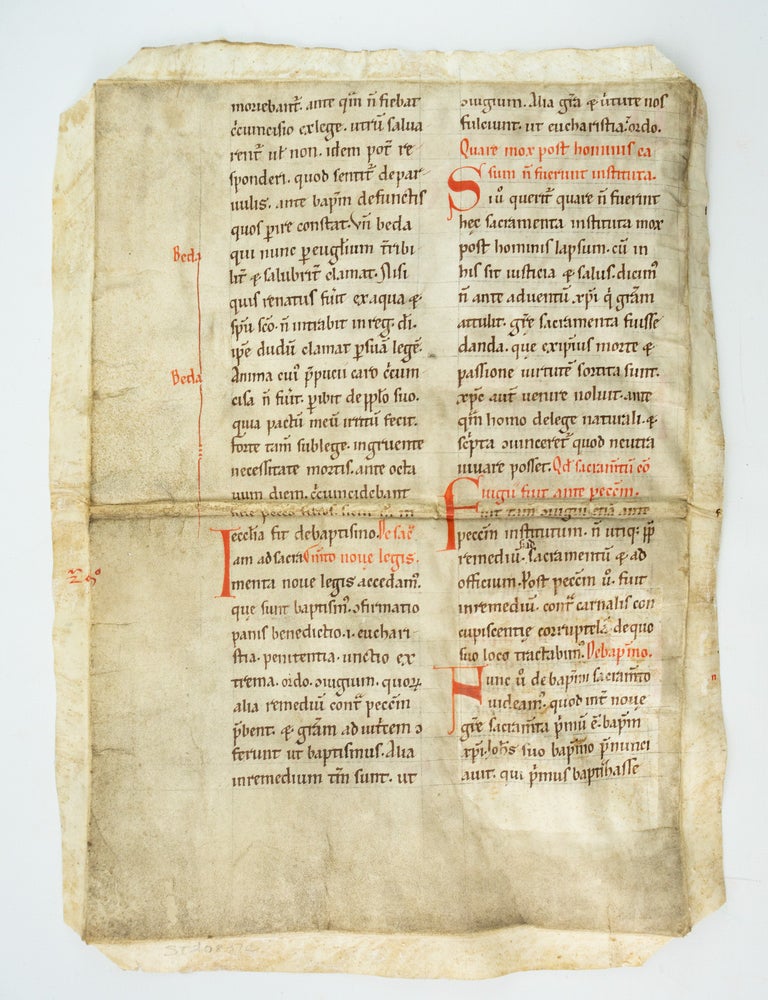 moriebant᷑. ante qm̄ n̄ fiebat
c̓cumcisio ex lege. utrū salua
rent᷑ ul̓ non. idem pot᷑ re
sponderi. quod sentit᷑ de par
uulis. ante bap̄m defunctis
quos ꝑire constat. Vn̄ beda
Beda
qui nunc ꝑ euḡlium t̄ribi
lit᷑ & salubrit᷑ clamat. Nisi
quis renatus fu̓it ex aqua &
sp̄u sc̄o. n̄ intrabit in reg. dī.
ip̄e dudū clamat ꝑ suā legē.
Beda
Anima cui᷒ p̓pucii caro c̓cum
cisa n̄ fu̓it. ꝑibit de pp̄lo suo.
quia pactū meū irritū fecit.
forte tam̄ sub lege. ingruente
necessitate mortis. ante octa
uum diem. c̓cumcidebant
eccl̄ia fit de baptismo. De sac̄
Iam ad sacra m̄to noue legis.
menta noue legis accedam᷒.
que sunt baptism᷒. ɔfirmatio
panis benedictio .i. euchari
stia. penitentia. unctio ex
trema. ordo. ɔiugium. quoꝝ
alia remediū cont᷑ peccm̄
p̄bent. & grām adiut̓cem ɔ
ferunt ut baptismus. Alia
in remedium tm̄ sunt. ut
ɔiugium. Alia gr̄a & u̓tute nos
fulciunt. ut eucharistia. ordo.
Quare mox post hominis ca
sum n̄ fuerunt instituta.
Si u᷒ querit᷑ quare n̄ fuerint
hec sacramenta instituta mox
post hominis lapsum. cū in
his sit iusticia & salus. dicim᷒
n̄ ante aduentū xp̄i q̓ grām
attulit. grē sacramenta fuisse
danda. que ex ip̄ius morte &
passione uirtutē sortita sunt.
xp̄c aut̄ uenire noluit. ante
qm̄ homo de lege naturali. &
sc̓pta ɔuinceret᷑ quod neutra
iuuare posset. Qd̄ sacram̄tū cō
iugii fuit ante peccm̄.
Fuit tam̄ ɔiugiū etiā ante
peccm̄ institutum. n̄ utiq; pp̄
remediū. sed sacramentū & ad
officium. Post peccm̄ u᷒. fuit
in remediū. cont᷑ carnalis con
cupiscentie corruptelā. de quo
suo loco tractabim᷒. De bap̄mo.
Nunc u᷒ de bap̄mi sacram̄to
uideam᷒. quod int᷑ noue
gr̄e sacram̄ta p̓mū ē. bap̄m
xp̄i. Joh̄s suo bap̄mo p̄nunci
auit. qui p̓mus baptizasse